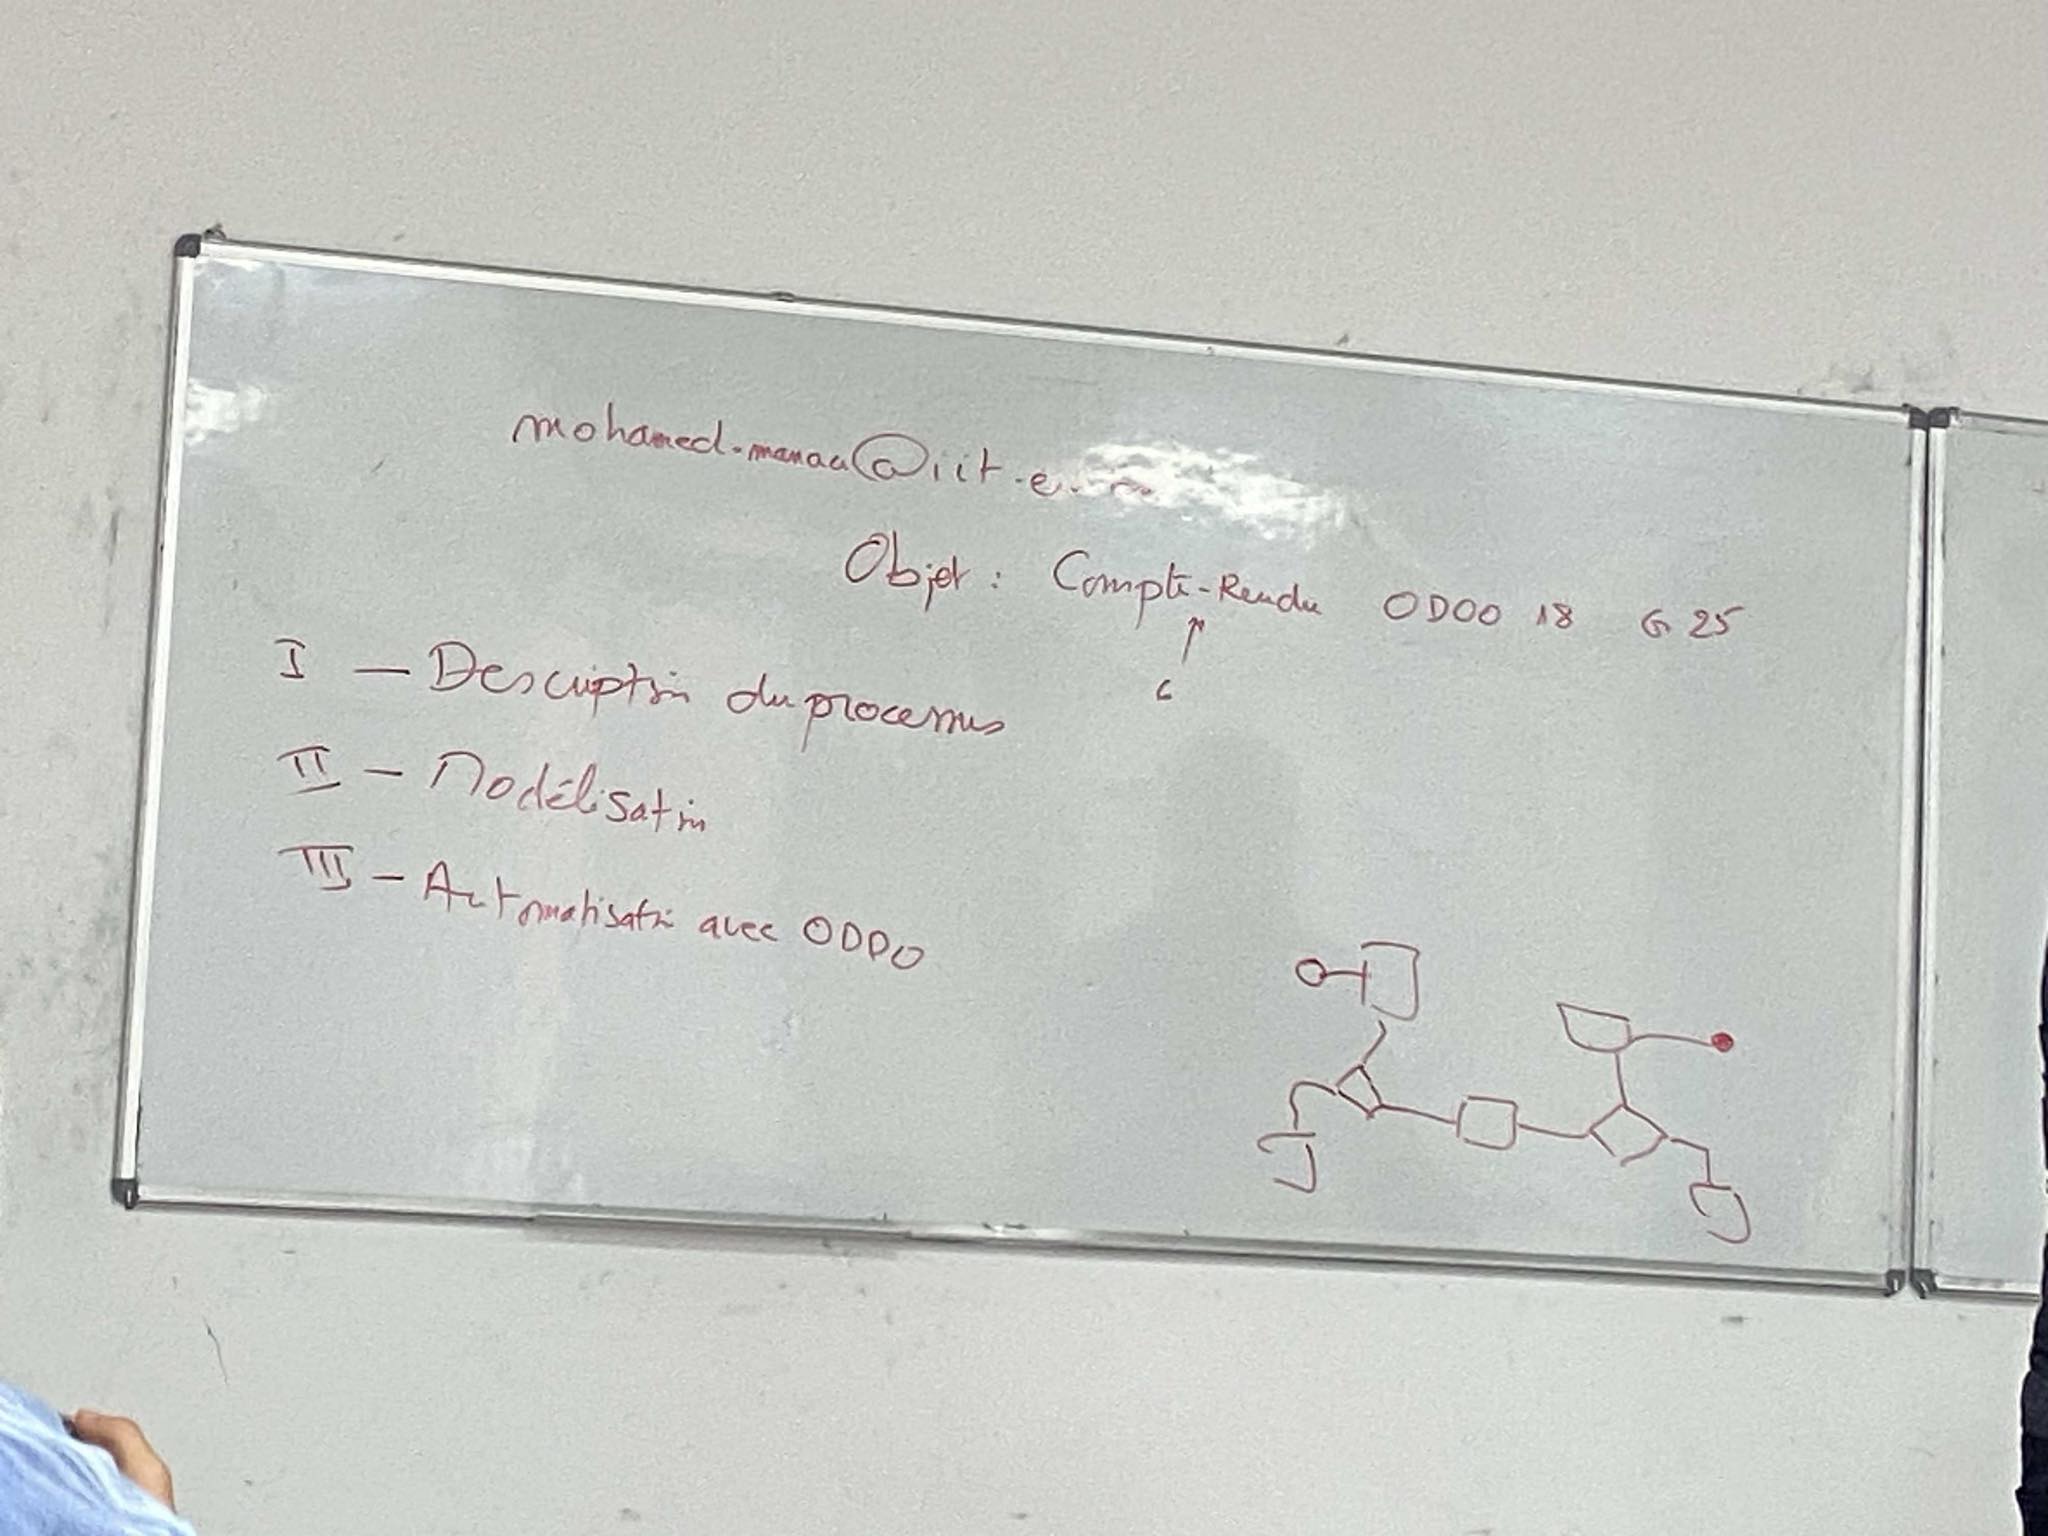 mohamed.manaa@iit.e
Objet : Compte-Rendu ODOO 18 G 25
6
I — Description du processus
II — Modélisation
III — Automatisation avec ODDO